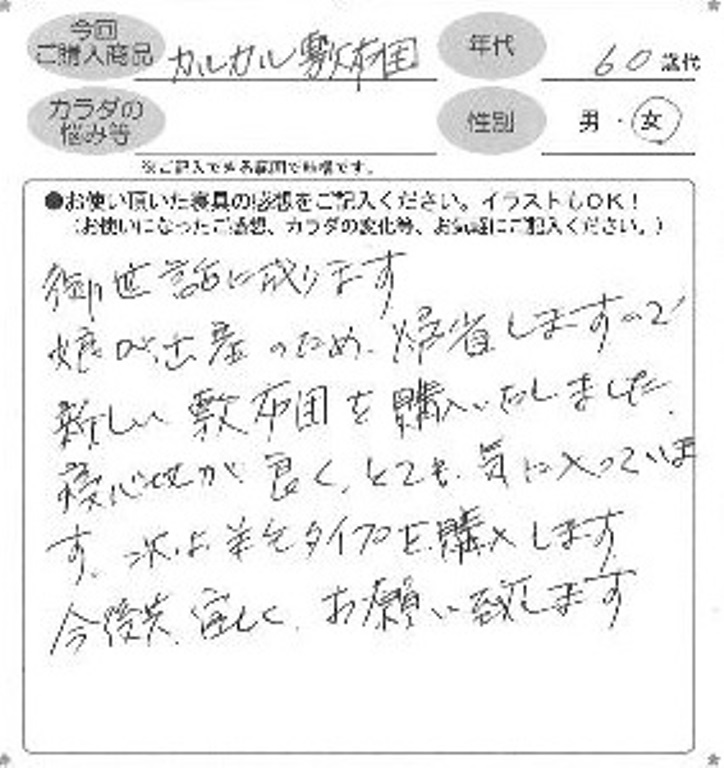 今回
ご購入商品
カルカル敷布団
年代
60歳代
カラダの
悩み等
性別
男・女
※ご記入できる範囲で結構です。
●お使い頂いた寝具の感想をご記入ください。イラストもOK！
（お使いになったご感想、カラダの変化等、お気軽にご記入ください。）
御世話に成ります
娘が出産のため、帰省しますので
新しい敷布団を購入いたしました。
寝心地が良く、とても気に入っていま
す。次は羊毛タイプを購入します
今後共宜しく、お願い致します